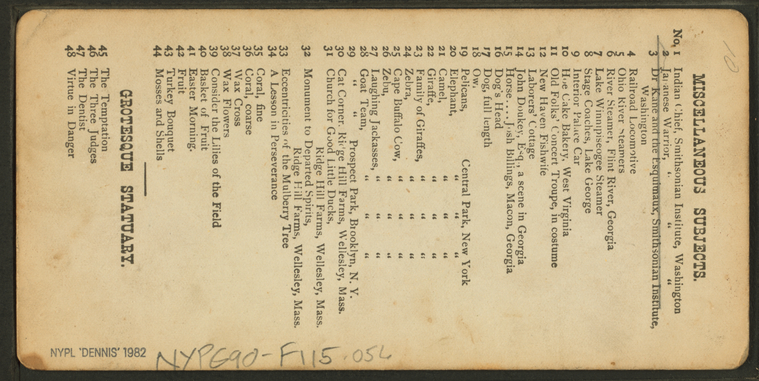 MISCELLANEOUS SUBJECTS.
No. 1 Indian Chief, Smithsonian Institute, Washington
2 Japanese Warrior, " " "
3 Dr Kane and the Esquimaux, Smithsonian Institute,
Washington
4 Railroad Locomotive
5 Ohio River Steamers
6 River Steamer, Flint River, Georgia
7 Lake Winnipiseogee Steamer
8 Stage Coaches, Lake George
9 Interior Palace Car
10 Hoe Cake Bakery, West Virginia
11 Old Folks' Concert Troupe, in costume
12 New Haven Fishwife
13 Laborers' Cottage
14 John Donkey, Esq., a scene in Georgia
15 Horse....Josh Billings, Macon, Georgia
16 Dog's Head
17 Dog, full length
18 Ow
19 Pelicans, Central Park, New York
20 Elephant, " " "
21 Camel, " " "
22 Giraffe, " " "
23 Family of Giraffes, " " "
24 Zebra, " " "
25 Cape Buffalo Cow, " " "
26 Zebu, " " "
27 Laughing Jackasses, " " "
28 Goat Team, " " "
29 " Prospect Park, Brooklyn, N. Y.
30 Cat Corner, Ridge Hill Farms, Wellesley, Mass.
31 Church for Good Little Ducks,
Ridge Hill Farms, Wellesley, Mass.
32 Monument to Departed Spirits,
Ridge Hill Farms, Wellesley, Mass.
33 Eccentricities of the Mulberry Tree
34 A Lesson in Perseverance
35 Coral, fine
36 Coral, coarse
37 Wax Cross
38 Wax Flowers
39 Consider the Lilies of the Field
40 Basket of Fruit
41 Easter Morning.
42 Fruit
43 Turkey Bouquet
44 Mosses and Shells
GROTESQUE STATUARY.
45 The Temptation
46 The Three Judges
47 The Dentist
48 Virtue in Danger
10
NYPL 'DENNIS' 1982
NYPG90-F115.056